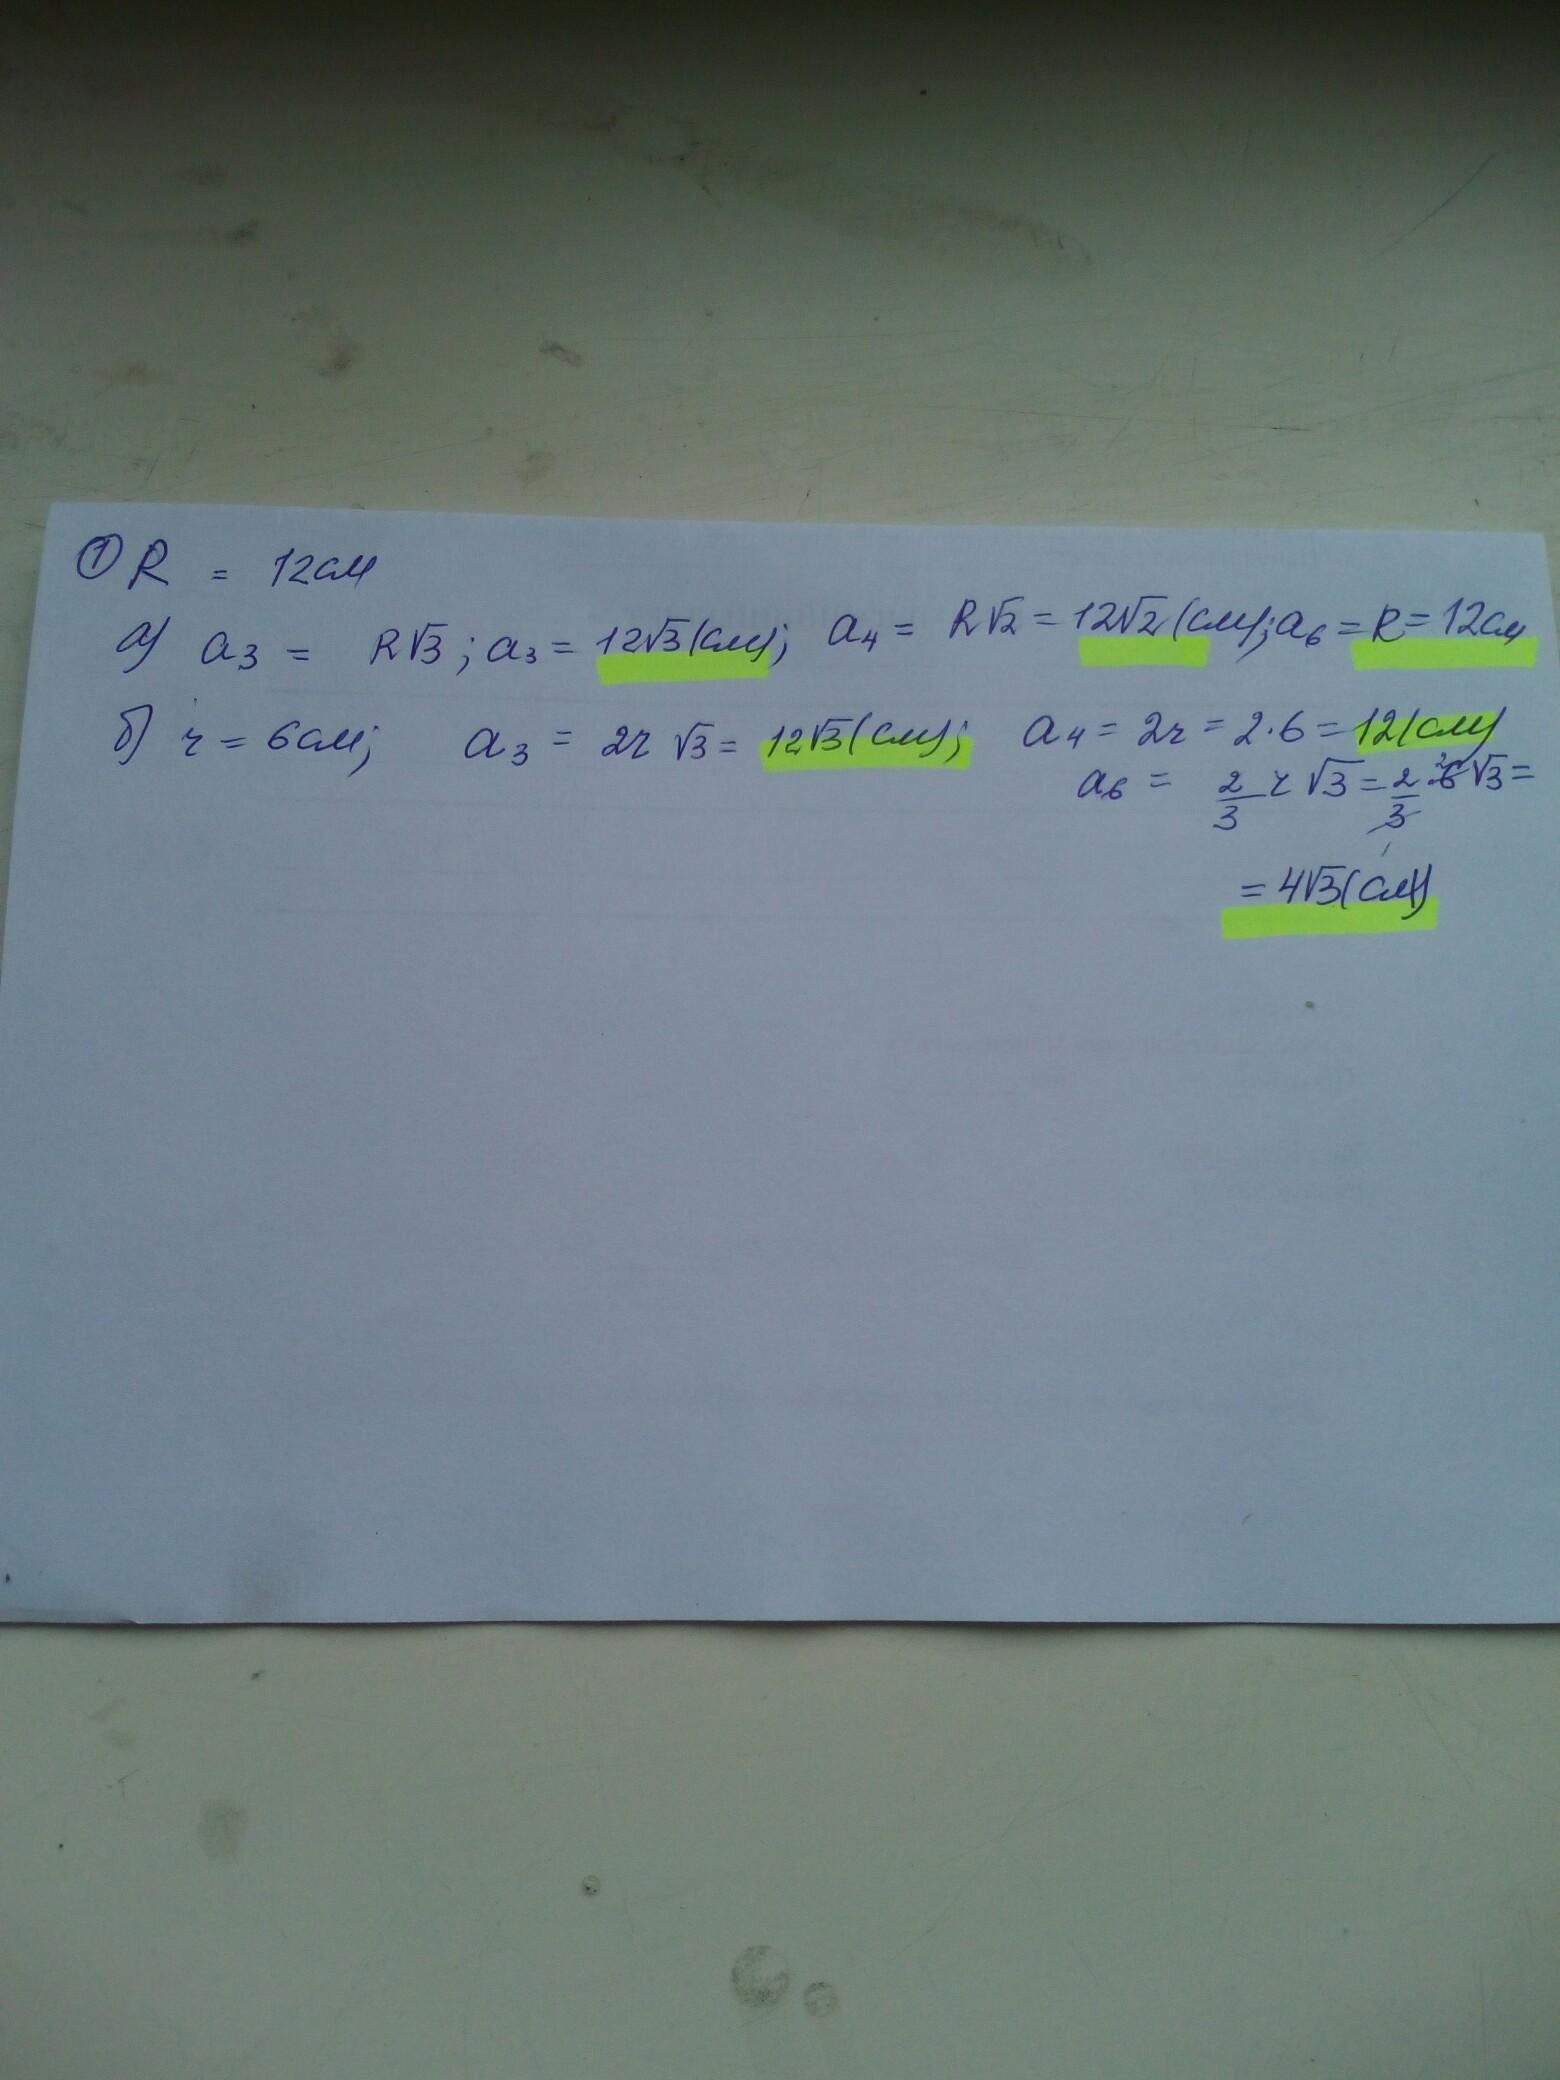 ① R = 12см
а) a₃ = R√3; a₃ = 12√3(см); a₄ = R√2 = 12√2(см); a₆ = R = 12см
б) r = 6см; a₃ = 2r√3 = 12√3(см); a₄ = 2r = 2·6 = 12(см)
a₆ = 2/3 r√3 = 2/3 · 6√3 =
= 4√3(см)